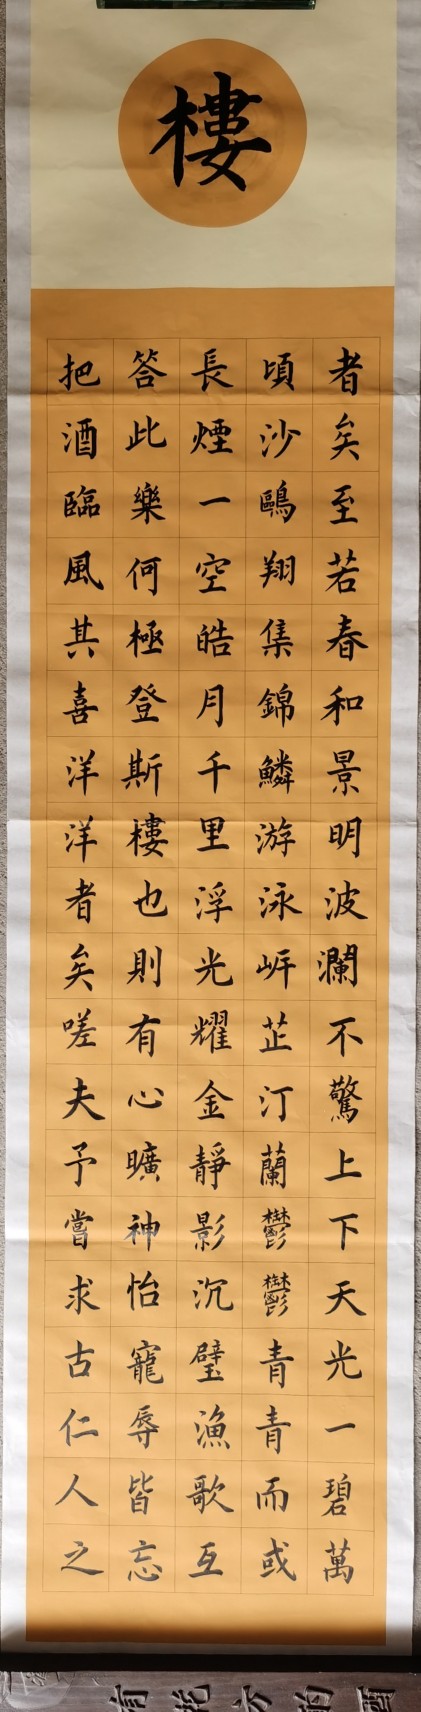 樓
者矣至若春和景明波瀾不驚上下天光一碧萬
頃沙鷗翔集錦鱗游泳岍芷汀蘭鬱鬱青青而或
長煙一空皓月千里浮光耀金靜影沉璧漁歌互
答此樂何極登斯樓也則有心曠神怡寵辱皆忘
把酒臨風其喜洋洋者矣嗟夫予嘗求古仁人之